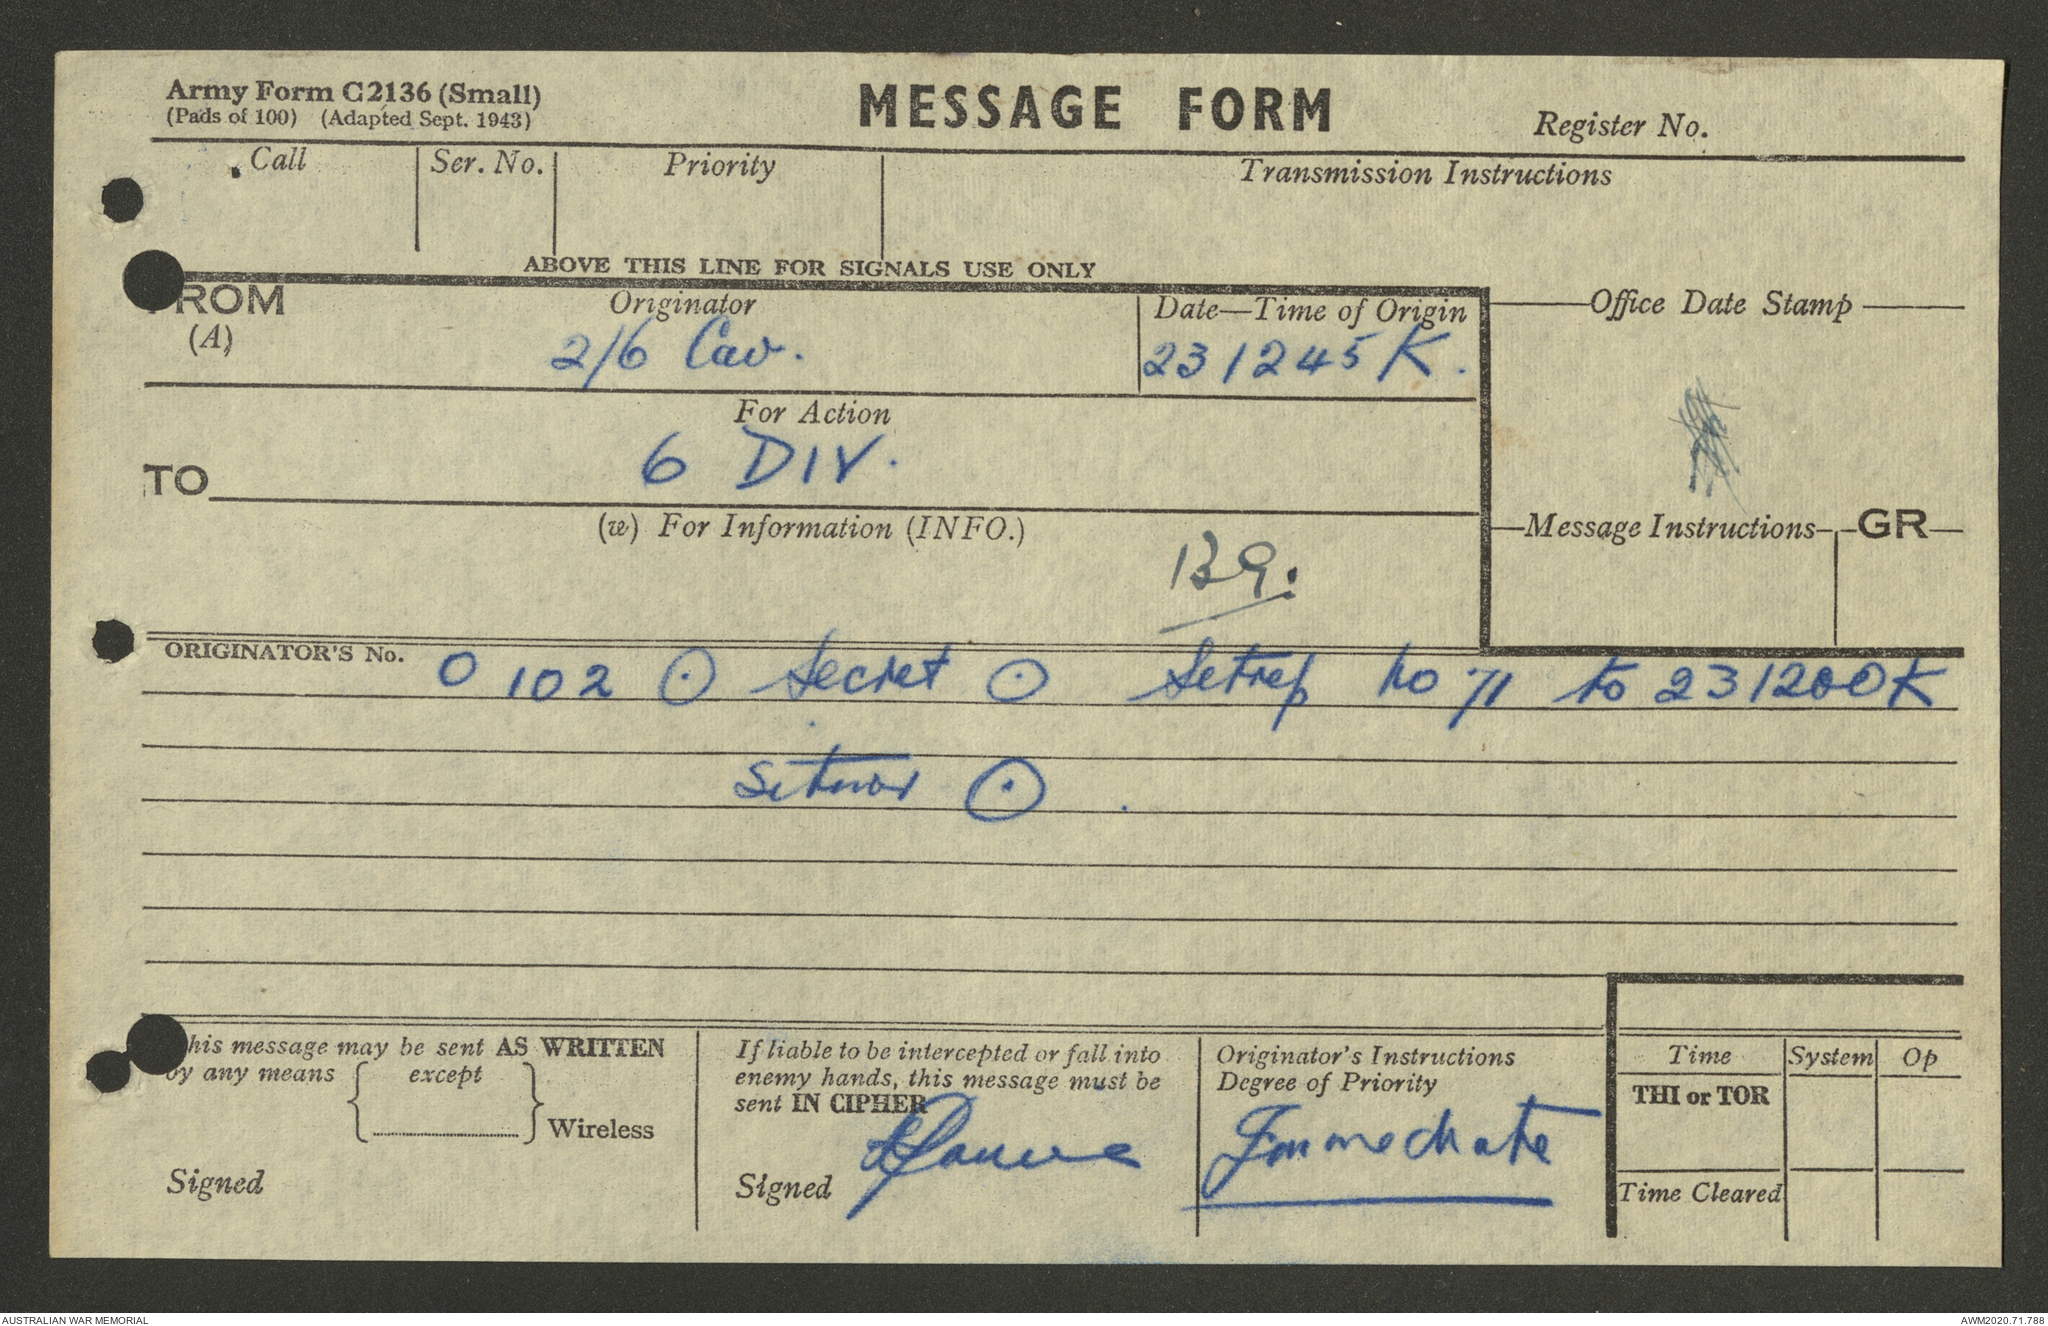 Army Form C2136 (Small)
(Pads of 100) (Adapted Sept. 1943)
MESSAGE FORM
Register No.
Call Ser. No. Priority Transmission Instructions
ABOVE THIS LINE FOR SIGNALS USE ONLY
ROM
(A)
Originator
2/6 Cav.
Date—Time of Origin
231245K.
Office Date Stamp
For Action
TO
6 DIV.
(w) For Information (INFO.)
139.
Message Instructions GR
ORIGINATOR'S No. O 102 ⊙ Secret ⊙ Sitrep No 71 to 231200K
Sitnor ⊙
his message may be sent AS WRITTEN
by any means except
Wireless
Signed
If liable to be intercepted or fall into
enemy hands, this message must be
sent IN CIPHER
Signed
Originator's Instructions
Degree of Priority
Immediate
Time System Op
THI or TOR
Time Cleared
AUSTRALIAN WAR MEMORIAL
AWM2020.71.788